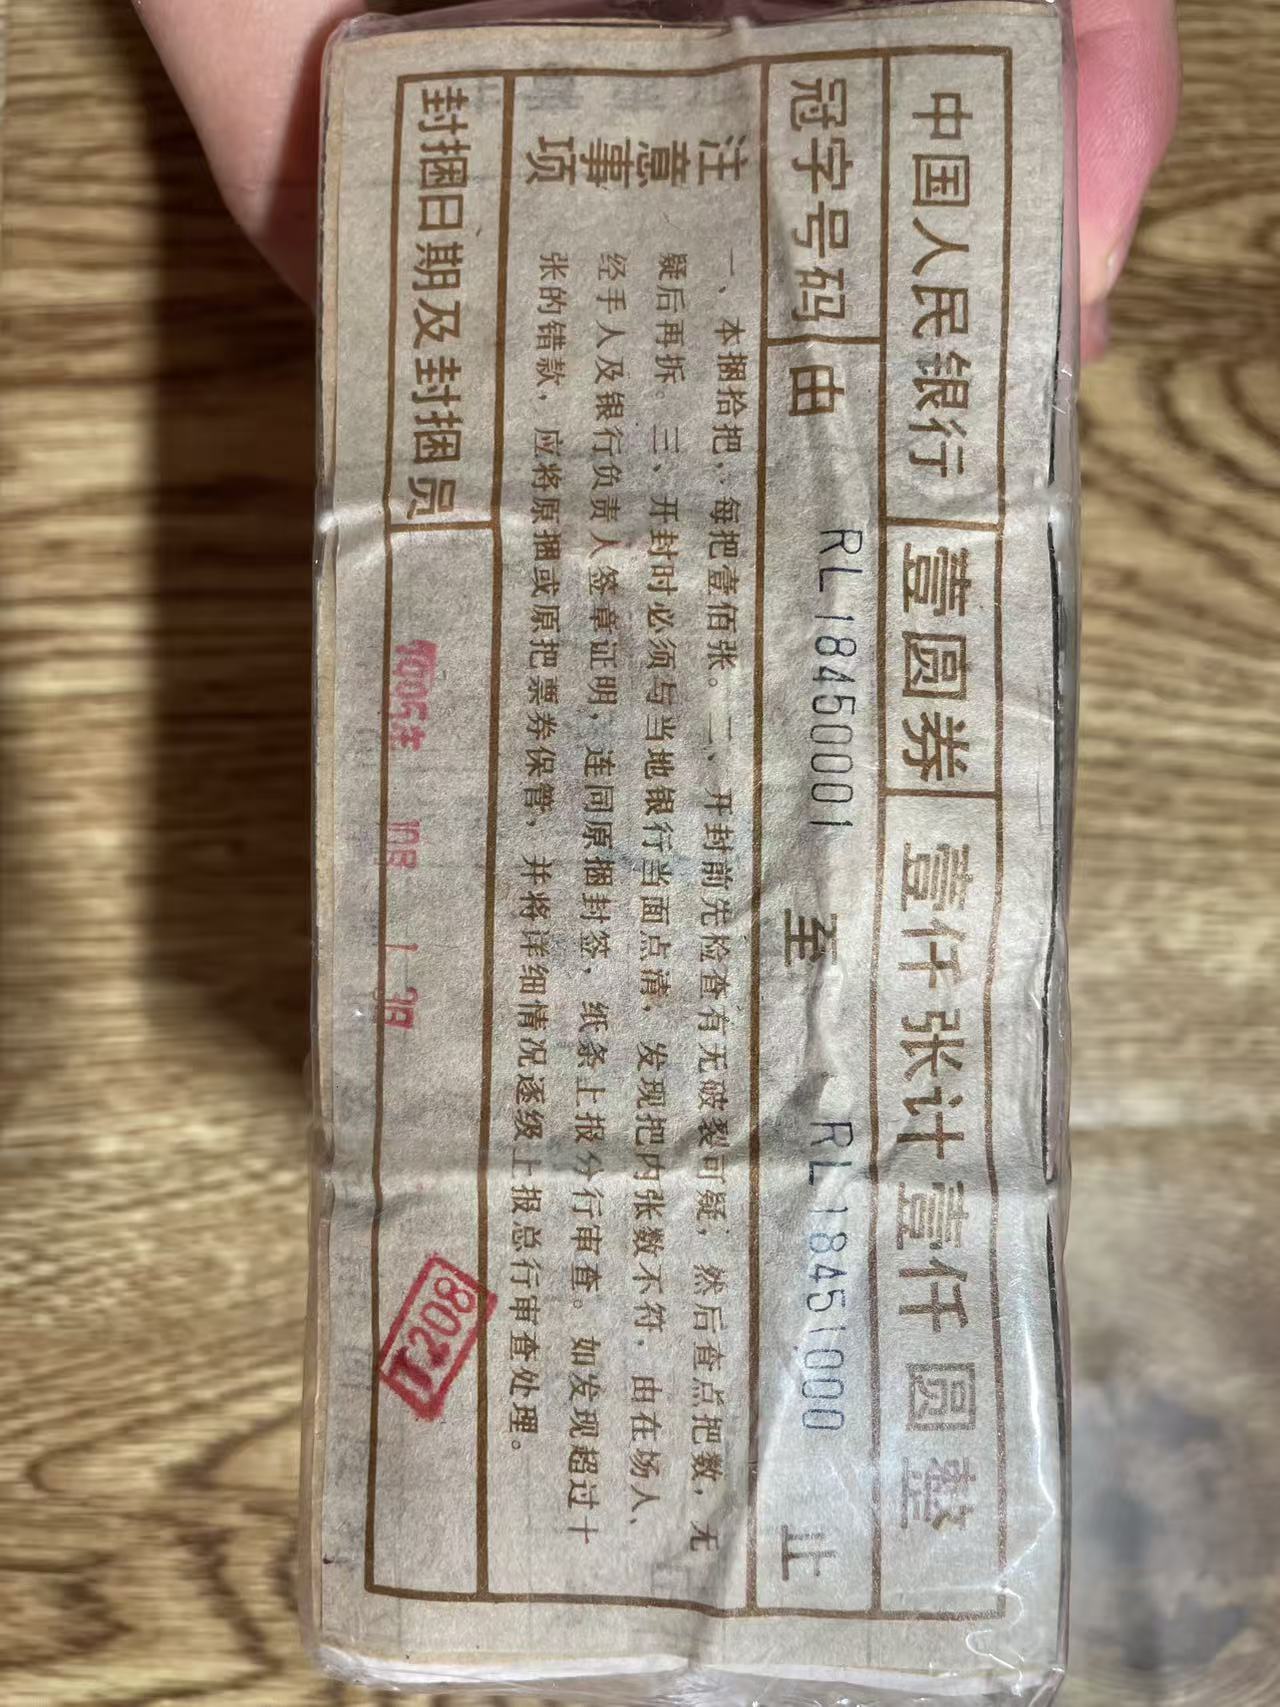 中国人民银行 壹圆券 壹仟张计壹仟圆整
冠字号码 由 RL 18450001 至 RL 18451000 止
注意事项
一、本捆拾把，每把壹佰张。二、开封前先检查有无破裂可疑，然后查点把数，无
疑后再拆。三、开封时必须与当地银行当面点清，发现把内张数不符，由在场人、
经手人及银行负责人签章证明，连同原捆封签，纸条上报分行审查。如发现超过十
张的错款，应将原捆或原把票券保管，并将详细情况逐级上报总行审查处理。
封捆日期及封捆员
1208